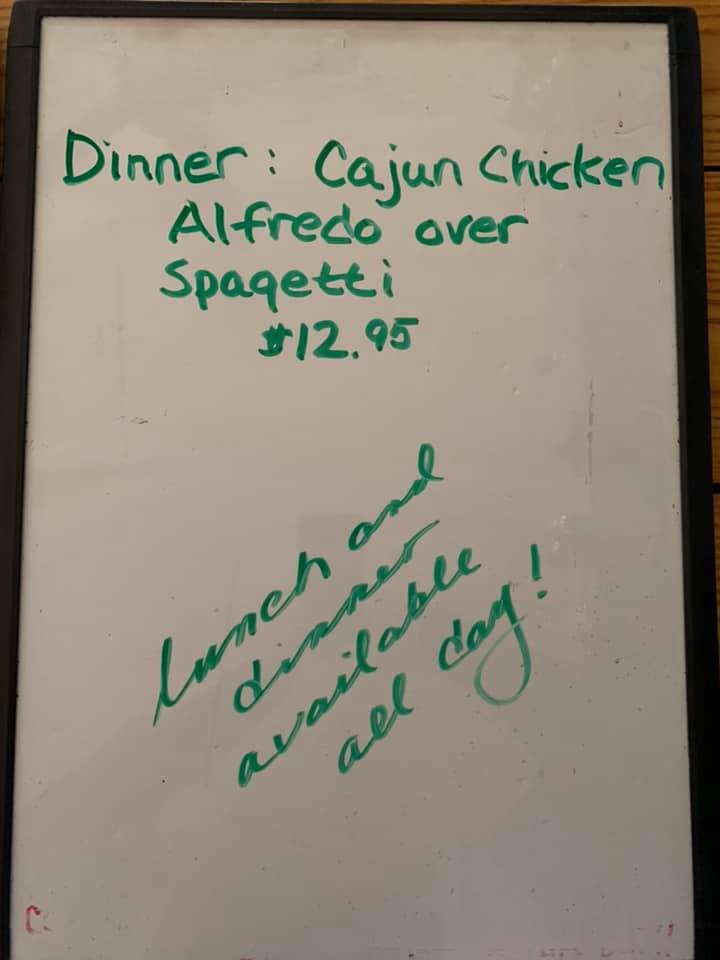 Dinner: Cajun Chicken
Alfredo over
Spagetti
$12.95
lunch and
dinner
available
all day!